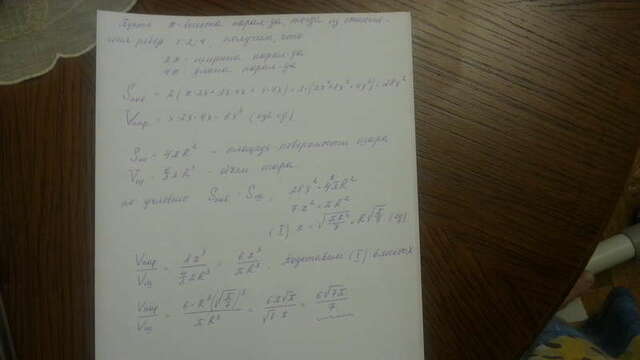 Пусть x - высота парал-да, тогда из отноше-
ния ребер 1:2:4 получим, что
2x - ширина парал-да
4x - длина парал-да
Sпов = 2(x·2x + 2x·4x + x·4x) = 2·(2x²+8x²+4x²) = 28x²
Vпар = x·2x·4x = 8x³ (куб.ед)
Sш = 4πR² - площадь поверхности шара
Vш = 4/3 πR³ - объем шара
по условию Sпов = Sш = 28x² = 4πR²
7x² = πR²
(I) x = √(πR²/7) = R√(π/7) (ед)
Vпар/Vш = 8x³/(4/3 πR³) = 6x³/πR³ подставим (I)
Vпар/Vш = 6·R³(√(π/7))³/πR³ =